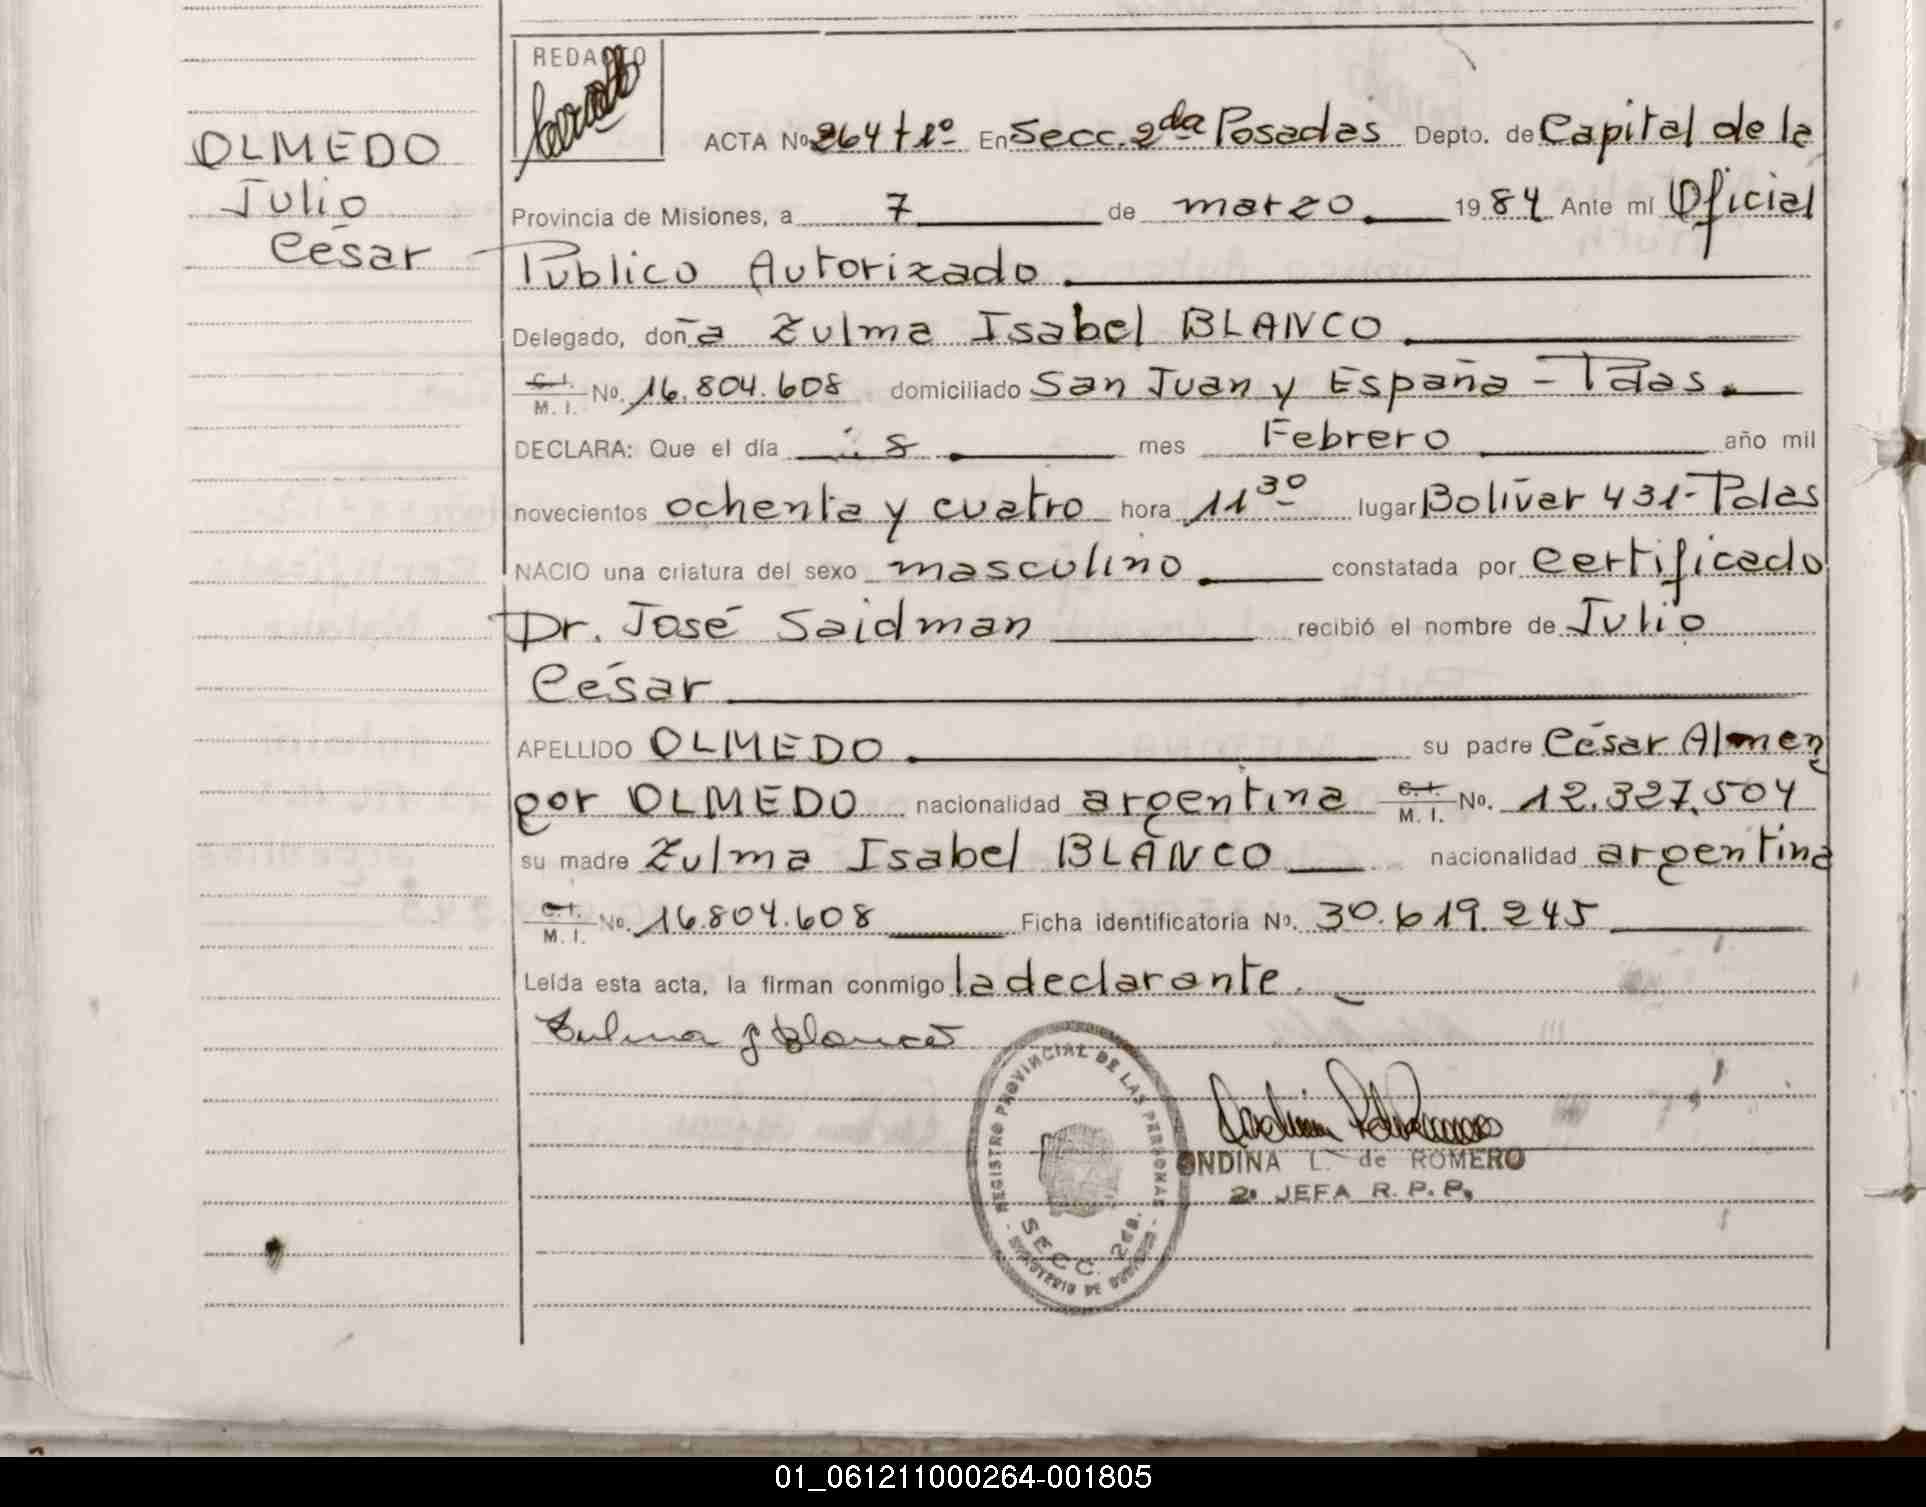 OLMEDO
Julio
César
REDACTO
ACTA Nº 264 tº 1º En Secc. 2da Posadas Depto. de Capital de la
Provincia de Misiones, a 7 de marzo 1984 Ante mi Oficial
Publico Autorizado
Delegado, doña Zulma Isabel BLANCO
C.I. M.I. No. 16.804.608 domiciliado San Juan y España - Pdas.
DECLARA: Que el día 8 mes Febrero año mil
novecientos ochenta y cuatro hora 11 30 lugar Bolívar 431- Pdas
NACIO una criatura del sexo masculino constatada por certificado
Dr. José Saidman recibió el nombre de Julio
César
APELLIDO OLMEDO su padre César Almen
gor OLMEDO nacionalidad argentina C.I. M.I. No. 12.327.504
su madre Zulma Isabel BLANCO nacionalidad argentina
C.I. M.I. No. 16.804.608 Ficha identificatoria No. 30.619.245
Leída esta acta, la firman conmigo la declarante.
Zulma I Blanco
REGISTRO PROVINCIAL DE LAS PERSONAS
SECC. 2da.
MINISTERIO DE GOBIERNO
ONDINA L. de ROMERO
2ª JEFA R.P.P.
01_061211000264-001805